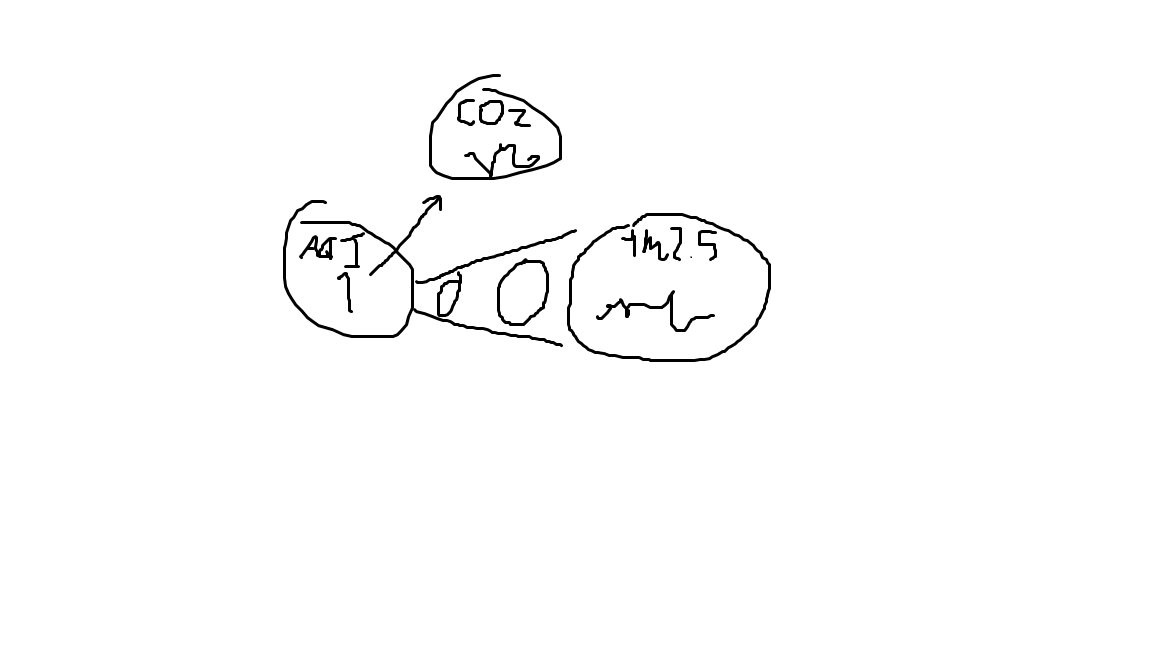 CO2
AQI
1
PM2.5